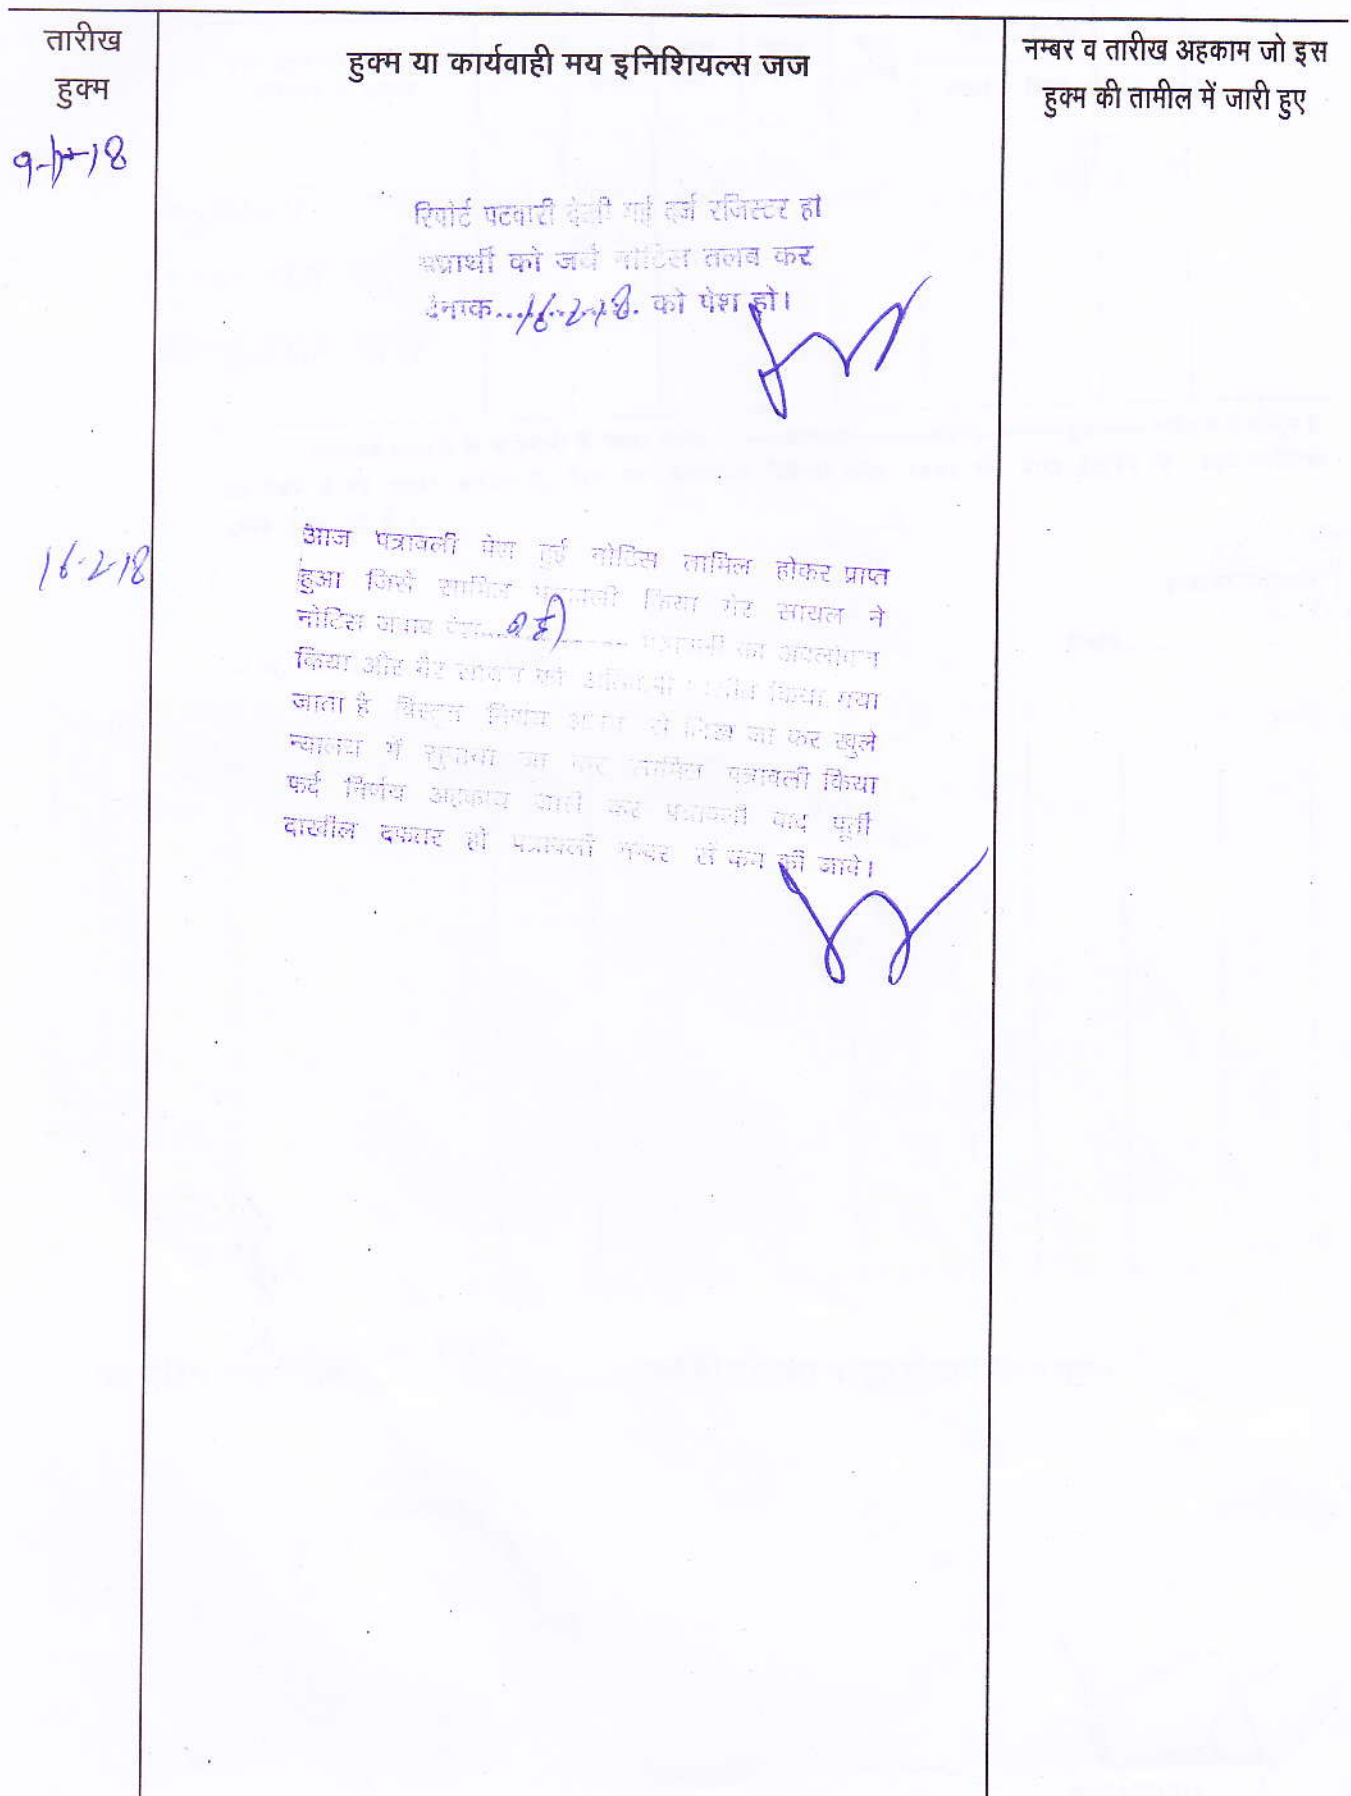 तारीख
हुक्म
हुक्म या कार्यवाही मय इनिशियल्स जज
नम्बर व तारीख अहकाम जो इस
हुक्म की तामील में जारी हुए
रिपोर्ट पटवारी देखी गई दर्ज रजिस्टर हो
को जर्ये नोटिस तलब कर
16-2-18. को पेश हो।
16-2-18
आज पत्रावली पेश हुई नोटिस तामिल होकर प्राप्त
हुआ जिसे सामिल पत्रावली किया गेर सायल ने
नोटिस जवाब पेश पत्रावली का अवलोकन
किया और गैर सायल को किया गया
जाता है निर्णय से लिखा जा कर खुले
न्यालय में सुनाया जा कर सामिल पत्रावली किया
फर्द निर्णय अहकाम जारी कर पत्रावली बाद पूर्ती
दाखील दफतर हो पत्रावली नम्बर से कम की जावे।